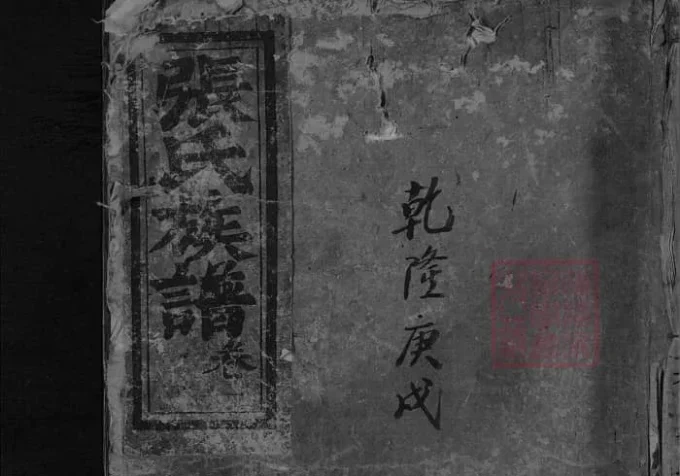 張氏族譜 卷一
乾隆庚戌